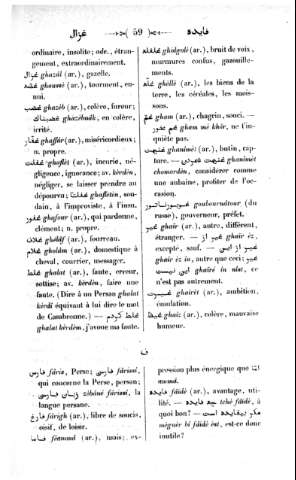 غزال
59
فایده
ordinaire, insolite; odc., étran-
gement, extraordinairement.
غزال ghazal (ar.), gazelle.
(ar.), tourment, en-
nui.
غضب ghazèb (ar.), colère, fureur;
ghazèbnâk, en colère,
irrité.
غفّار ghaffâr (ar.), miséricordieux;
n. propre.
غفلت ghaflèt (ar.), incurie, né-
gligence, ignorance; av. kèrdèn,
négliger, se laisser prendre au
dépourvu; غفلتاً ghaflètèn, sou-
dain, à l'improviste, à l'insu.
غفور ghafour (ar.), qui pardonne,
clément; n. propre.
غلاف ghèlâf (ar.), fourreau.
غلام gholâm (ar.), domestique à
cheval, courrier, messager.
غلط ghalat (ar.), faute, erreur,
sottise; av. kèrdèn, faire une
faute. (Dire à un Persan ghalat
kèrdi équivaut à lui dire le mot
de Cambronne.) — غلط کردم
ghalat kèrdèm, j'avoue ma faute.
(ar.), bruit de voix,
murmures confus, gazouille-
ments.
غلّه ghèllè (ar.), les biens de la
terre, les céréales, les mois-
sons.
غم gham (ar.), chagrin, souci. —
غم مخور gham mè khôr, ne t'in-
quiète pas.
غنیمت ghanimèt (ar.), butin, cap-
ture. — غنیمت شمردن ghanimèt
chomordèn, considérer comme
une aubaine, profiter de l'oc-
casion.
(du
russe), gouverneur, préfet.
غیر ghaïr (ar.), autre, différent,
étranger. — غیر از ghaïr èz,
excepté, sauf. — غیر از این
ghaïr èz in, autre que ceci; غیر
این نیست ghaïrè in nist, ce
n'est pas autrement.
غیرت ghaïrèt (ar.), ambition,
émulation.
غیظ ghaïz (ar.), colère, mauvaise
humeur.
ف
فارس fârès, Perse; فارسی fârèssi,
qui concerne la Perse, persan;
زبان فارسی zèbânè fârèssi, la
langue persane.
فارغ fârègh (ar.), libre de soucis,
oisif, de loisir.
فاما fâamma (ar.), mais; ex-
pression plus énergique que امّا
amma.
فایده fâïdè (ar.), avantage, uti-
lité. — چه فایده tchè fâïdè, à
quoi bon? — مگر بیفایده است
mèguèr bi fâïdè èst, est-ce donc
inutile?